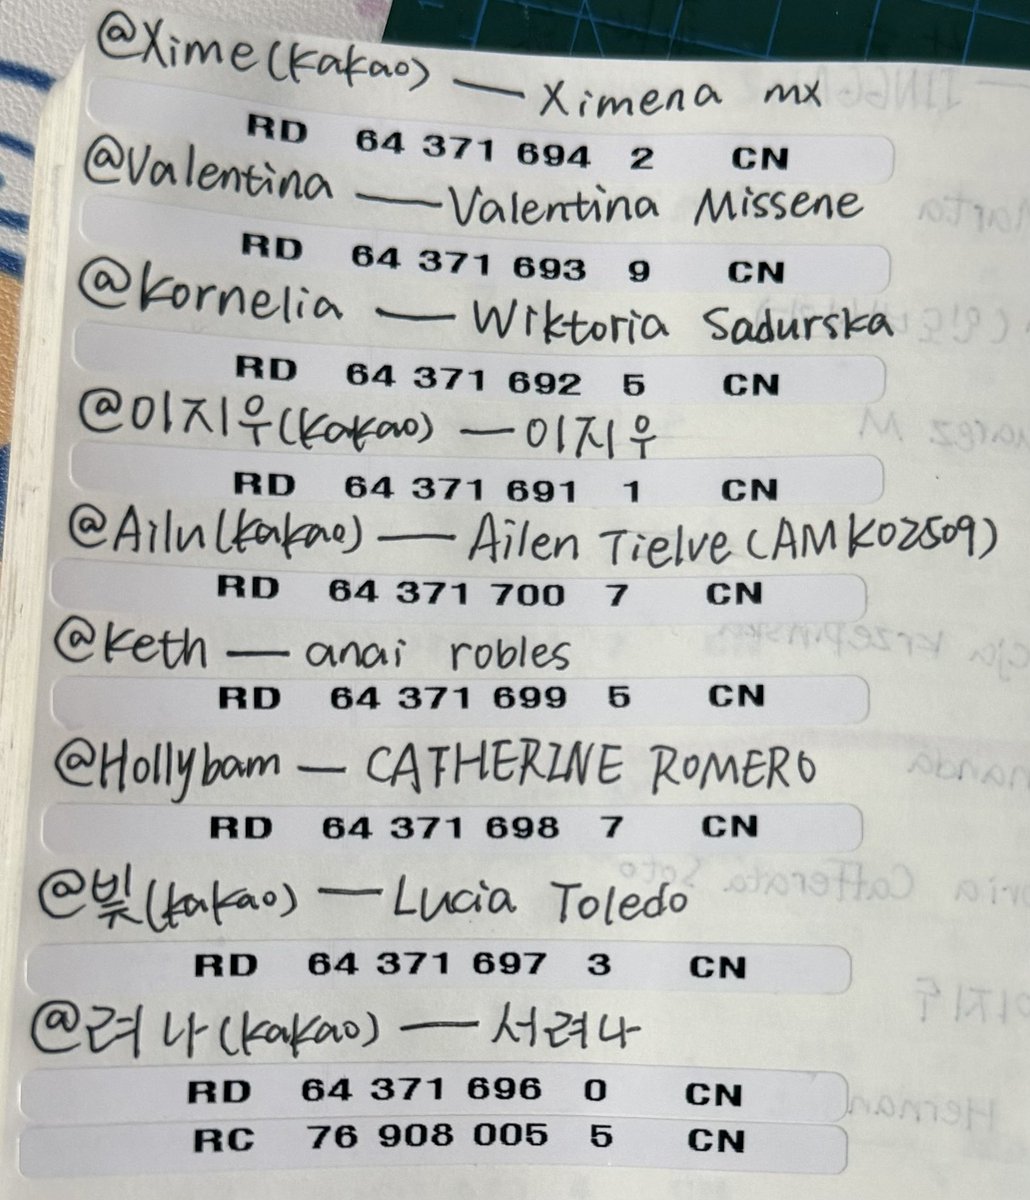 @Xime(kakao) — Ximena mx
RD 64 371 694 2 CN
@Valentina — Valentina Missene
RD 64 371 693 9 CN
@kornelia — Wiktoria Sadurska
RD 64 371 692 5 CN
@이지우(kakao) — 이지우
RD 64 371 691 1 CN
@Ailu(kakao) — Ailen Tielve (AMK02509)
RD 64 371 700 7 CN
@keth — anai robles
RD 64 371 699 5 CN
@Hollybam — CATHERINE ROMERO
RD 64 371 698 7 CN
@빛(kakao) — Lucia Toledo
RD 64 371 697 3 CN
@려나(kakao) — 서려나
RD 64 371 696 0 CN
RC 76 908 005 5 CN